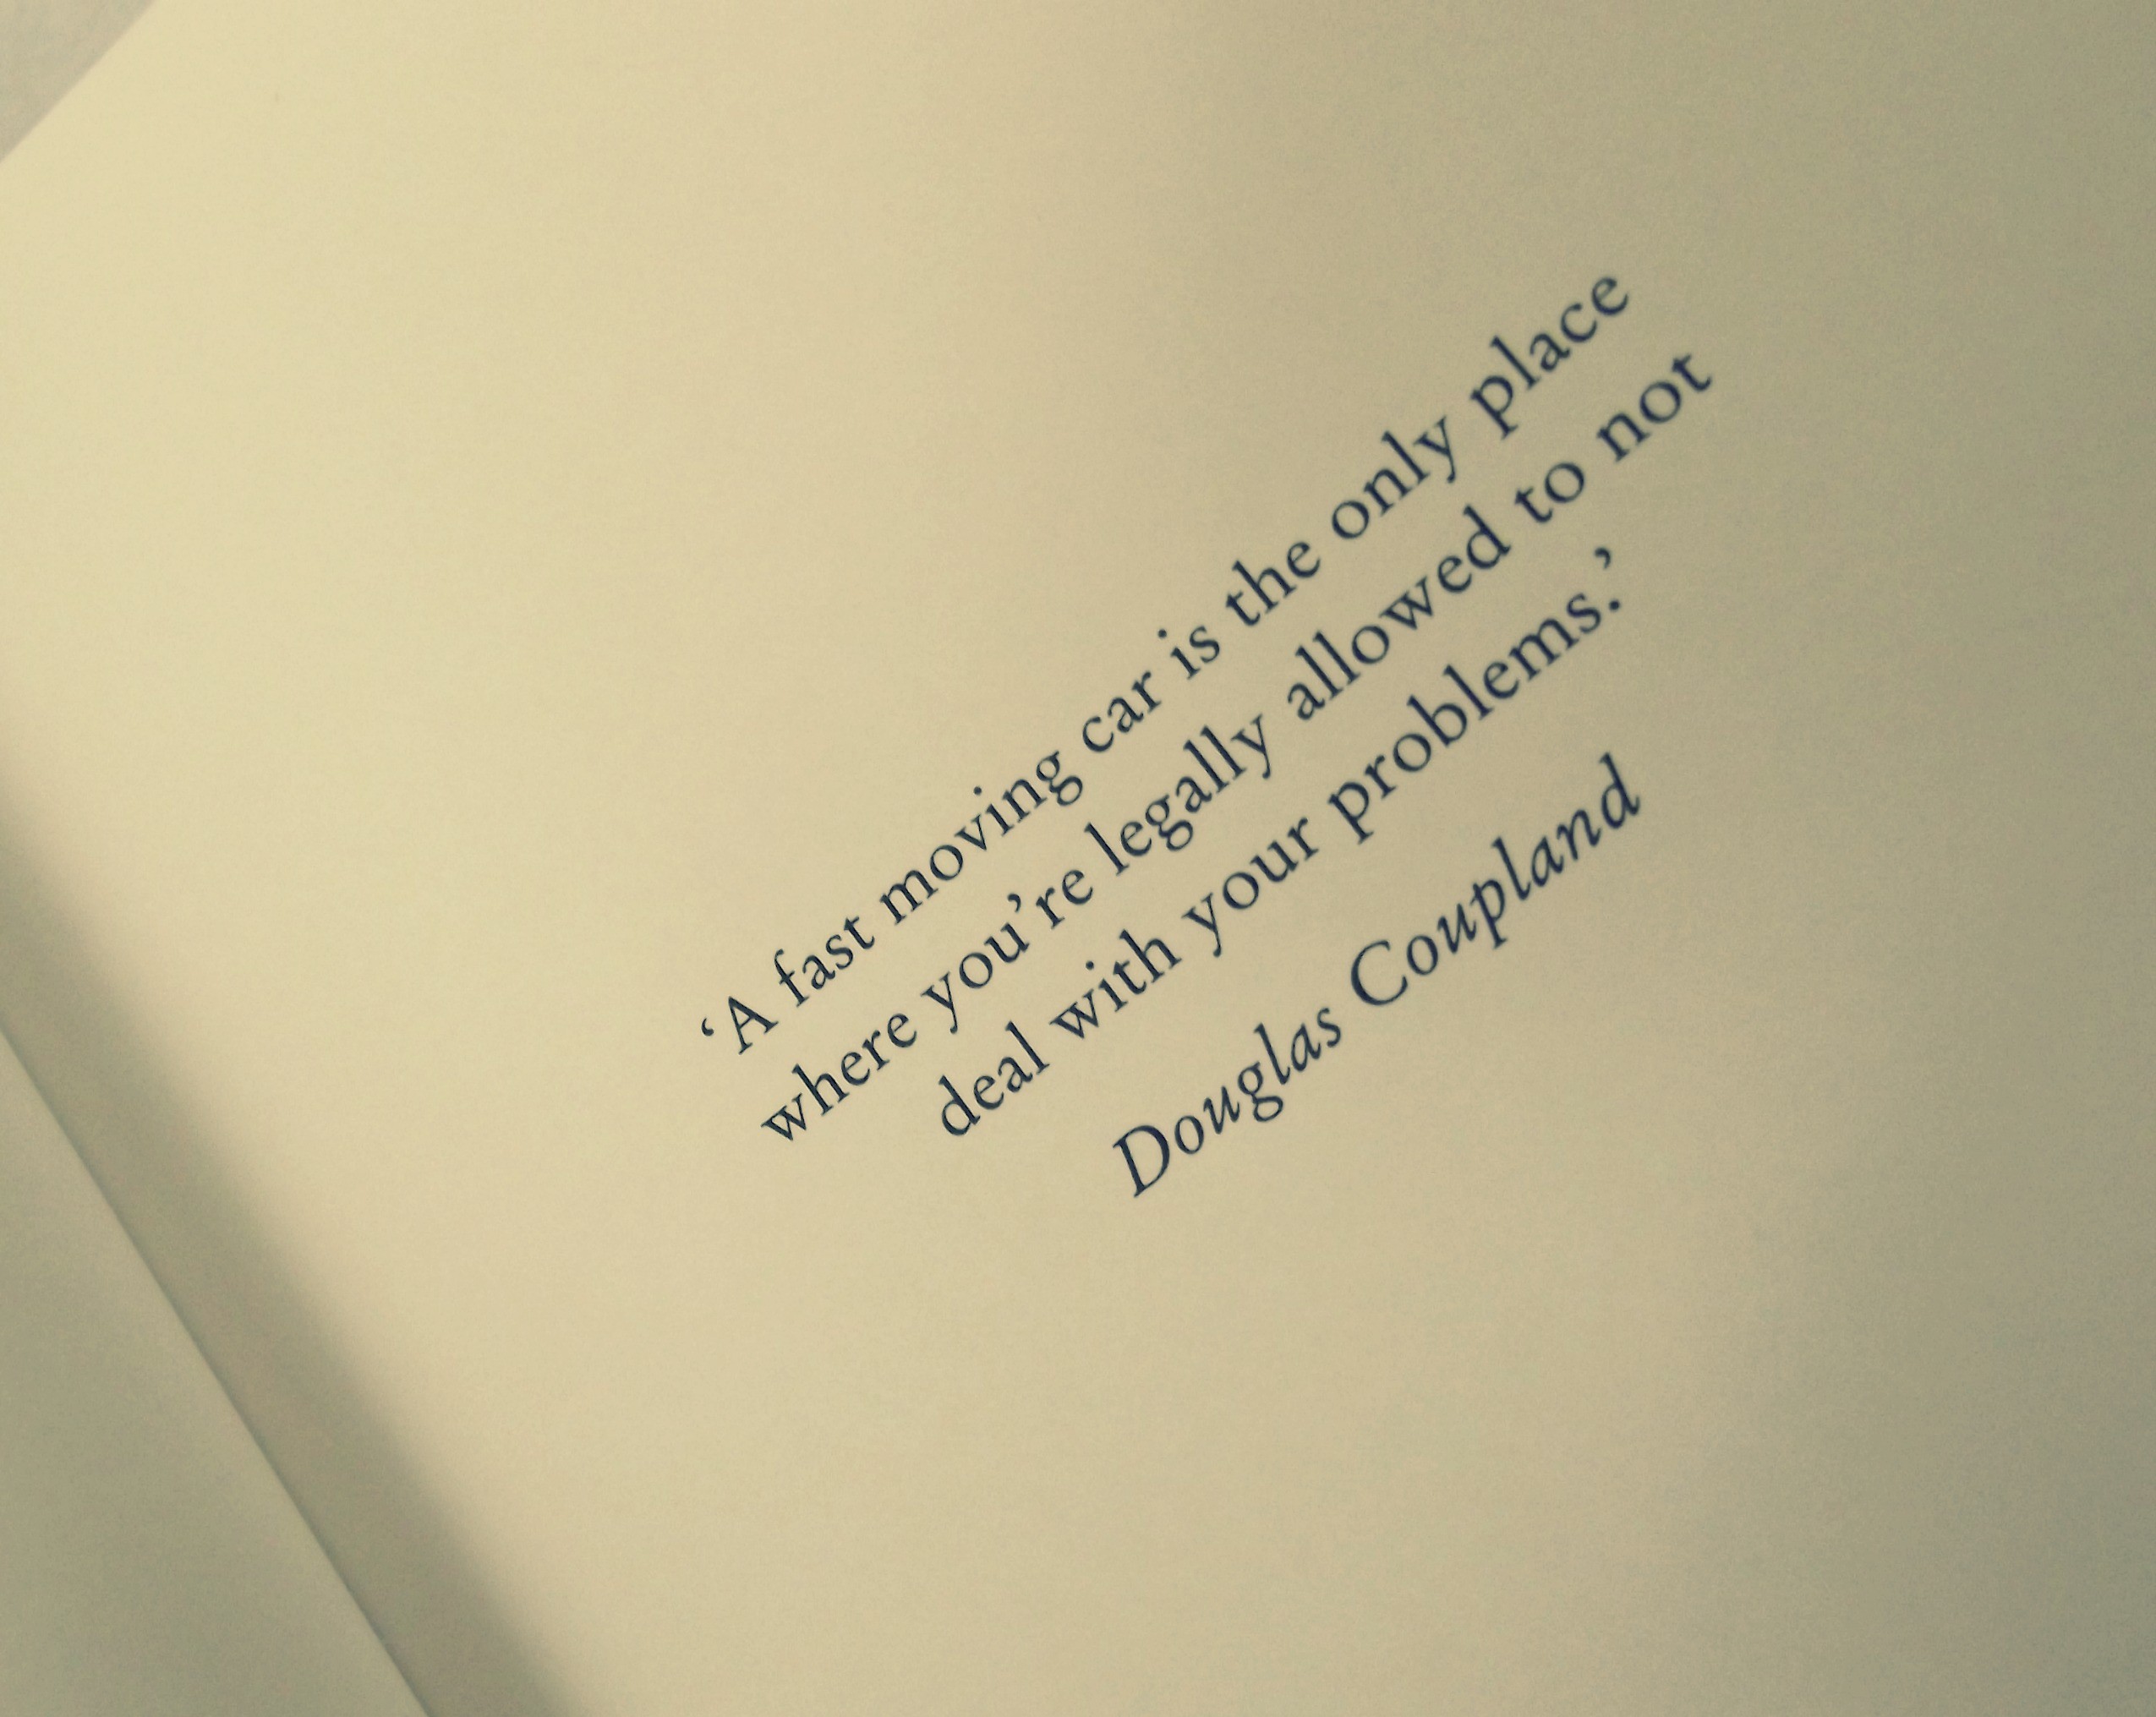 ‘A fast moving car is the only place
where you’re legally allowed to not
deal with your problems.’
Douglas Coupland